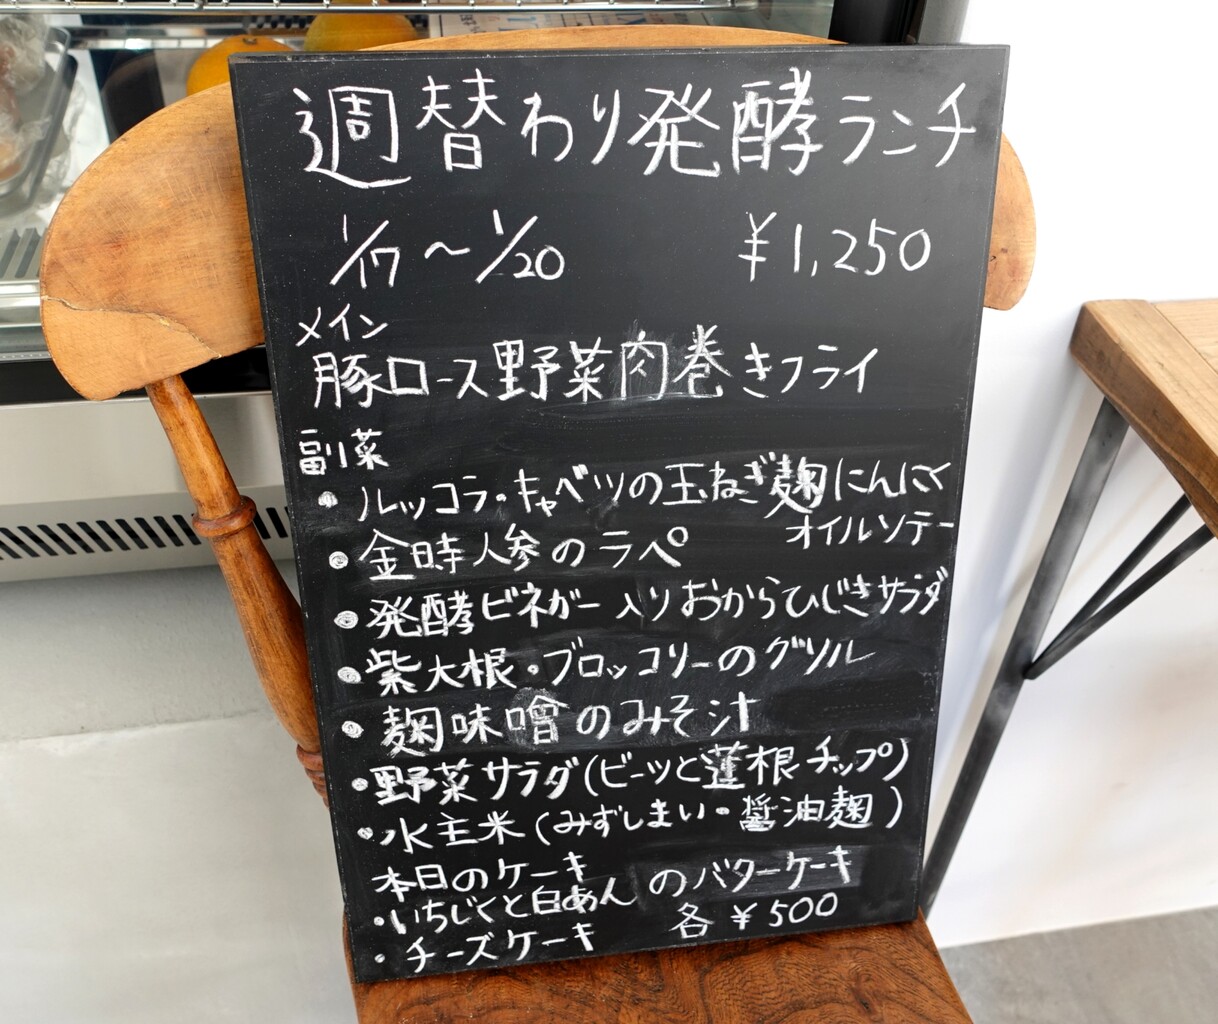 週替わり発酵ランチ
1/17〜1/20 ¥1,250
メイン
豚ロース野菜肉巻きフライ
副菜
・ルッコラ・キャベツの玉ねぎ麹にんにく
オイルソテー
・金時人参のラペ
・発酵ビネガー入りおからひじきサラダ
・紫大根・ブロッコリーのグリル
・麹味噌のみそ汁
・野菜サラダ(ビーツと蓮根チップ)
・水主米(みずしまい・醤油麹)
本日のケーキ
・いちじくと白あんのバターケーキ
・チーズケーキ 各¥500